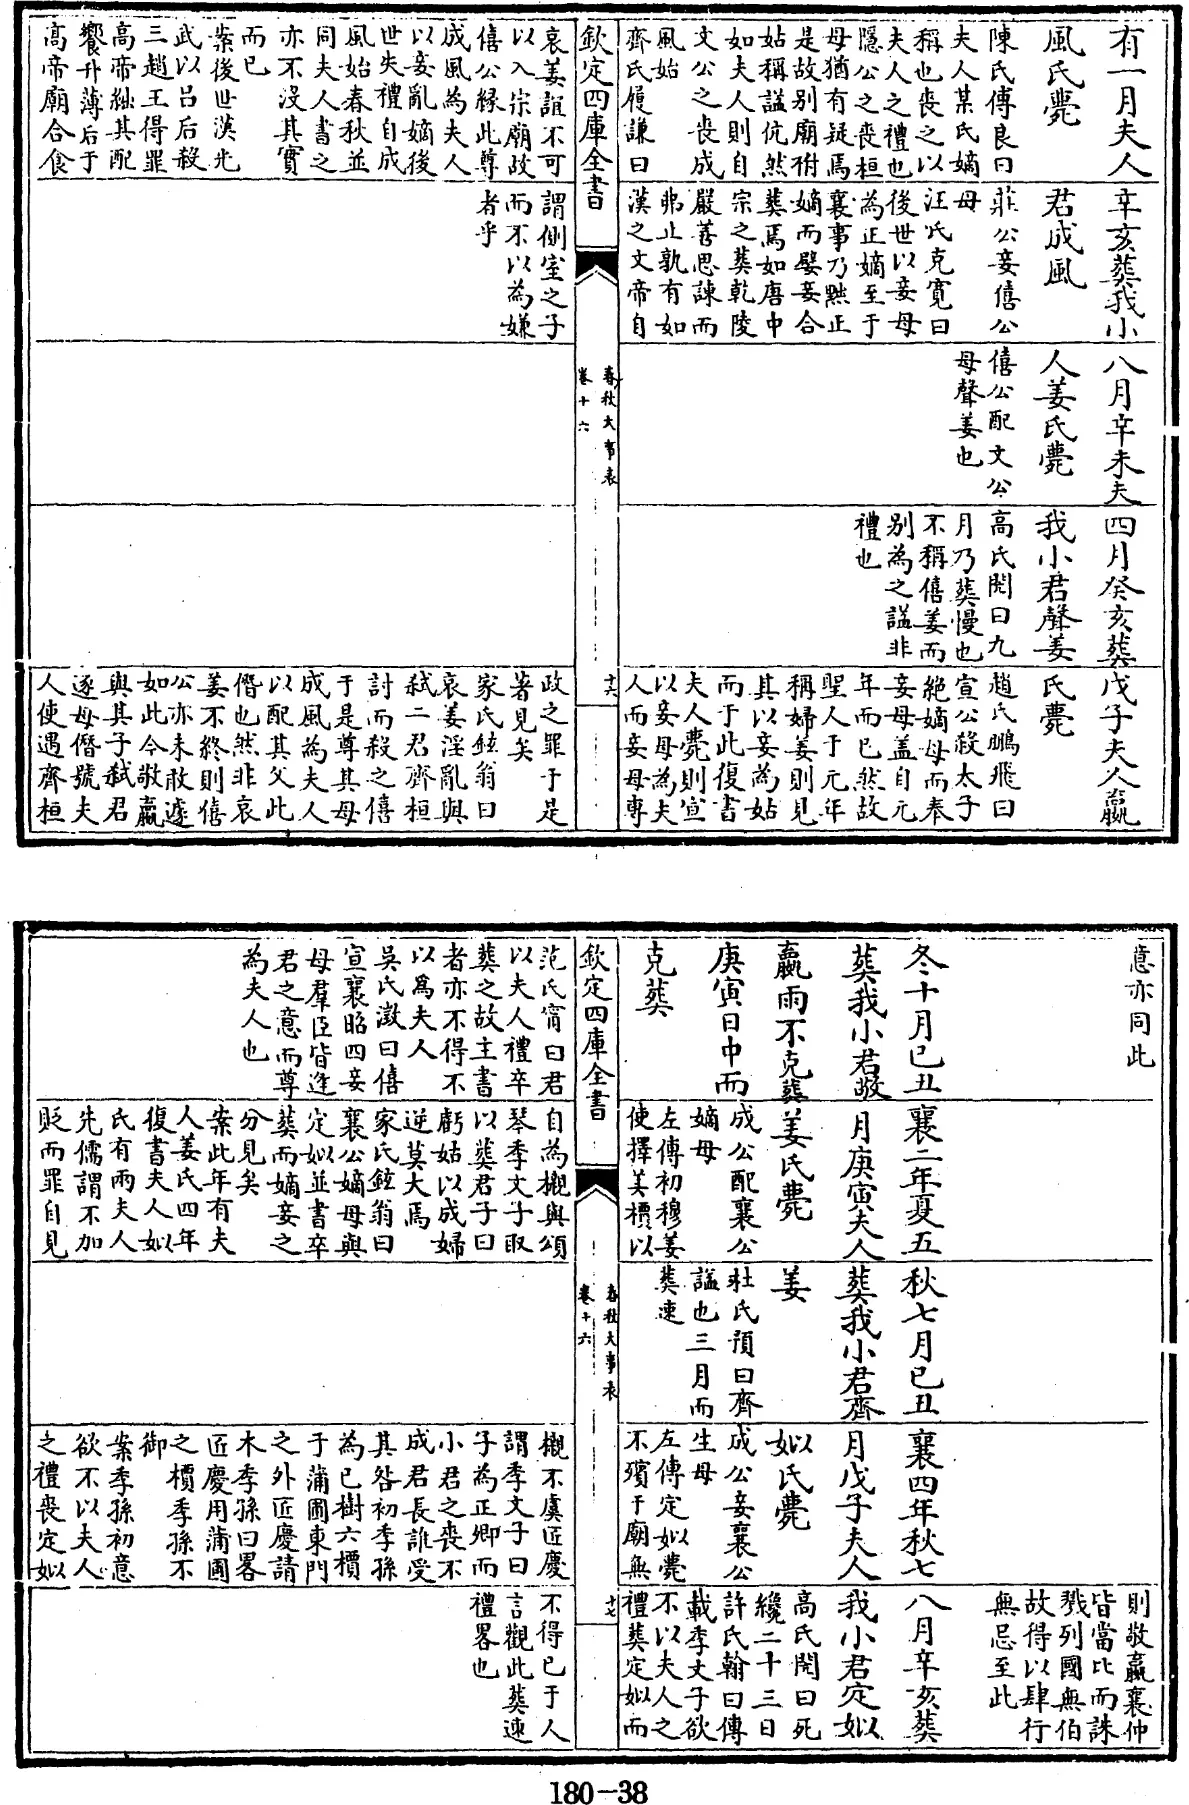 有一月夫人
風氏薨
陳氏傅良曰
夫人某氏嫡
稱也喪之以
夫人之禮也
隱公之喪桓
母猶有疑焉
是故别廟祔
姑稱謚伉然
如夫人則自
文公之喪成
風始
齊氏履謙曰
辛亥葬我小
君成風
莊公妾僖公
母
汪氏克寛曰
後世以妾母
為正嫡至于
襄事乃黜正
嫡而嬖妾合
葬焉如唐中
宗之葬乾陵
嚴善思諫而
弗止孰有如
漢之文帝自
八月辛未夫
人姜氏薨
僖公配文公
母聲姜也
四月癸亥葬
我小君聲姜
高氏閌曰九
月乃葬慢也
不稱僖姜而
别為之謚非
禮也
戊子夫人嬴
氏薨
趙氏鵬飛曰
宣公殺太子
絶嫡母而奉
妾母蓋自元
年而已然故
聖人于元年
稱婦姜則見
其以妾為姑
而于此復書
夫人薨則宣
以妾母為夫
人而妾母專
欽定四庫全書
春秋大事表
卷十六
十六
哀姜誼不可
以入宗廟故
僖公緣此尊
成風為夫人
以妾亂嫡後
世失禮自成
風始春秋並
同夫人書之
亦不沒其實
而已
案後世漢光
武以呂后殺
三趙王得罪
高帝絀其配
饗升薄后于
高帝廟合食
謂側室之子
而不以為嫌
者乎
政之罪于是
著見矣
家氏鉉翁曰
哀姜淫亂與
弑二君齊桓
討而殺之僖
于是尊其母
成風為夫人
以配其父此
僭也然非哀
姜不終則僖
公亦未敢遽
如此今敬嬴
與其子弑君
逐母僭號夫
人使遇齊桓
意亦同此
冬十月己丑
葬我小君敬
嬴雨不克葬
庚寅日中而
克葬
襄二年夏五
月庚寅夫人
姜氏薨
成公配襄公
嫡母
左傳初穆姜
使擇美檟以
秋七月己丑
葬我小君齊
姜
杜氏預曰齊
謚也三月而
葬速
襄四年秋七
月戊子夫人
姒氏薨
成公妾襄公
生母
左傳定姒薨
不殯于廟無
則敬嬴襄仲
皆當比而誅
戮列國無伯
故得以肆行
無忌至此
八月辛亥葬
我小君定姒
高氏閌曰死
纔二十三日
許氏翰曰傳
載季文子欲
不以夫人之
禮葬定姒而
欽定四庫全書
春秋大事表
卷十六
十七
范氏甯曰君
以夫人禮卒
葬之故主書
者亦不得不
以爲夫人
吳氏澂曰僖
宣襄昭四妾
母羣臣皆逢
君之意而尊
為夫人也
自為櫬與頌
琴季文子取
以葬君子曰
虧姑以成婦
逆莫大焉
家氏鉉翁曰
襄公嫡母與
定姒並書卒
葬而嫡妾之
分見矣
案此年有夫
人姜氏四年
復書夫人姒
氏有兩夫人
先儒謂不加
貶而罪自見
櫬不虞匠慶
謂季文子曰
子為正卿而
小君之喪不
成君長誰受
其咎初季孫
為已樹六檟
于蒲圃東門
之外匠慶請
木季孫曰畧
匠慶用蒲圃
之檟季孫不
御
案季孫初意
欲不以夫人
之禮喪定姒
不得已于人
言觀此葬速
禮畧也
180-38